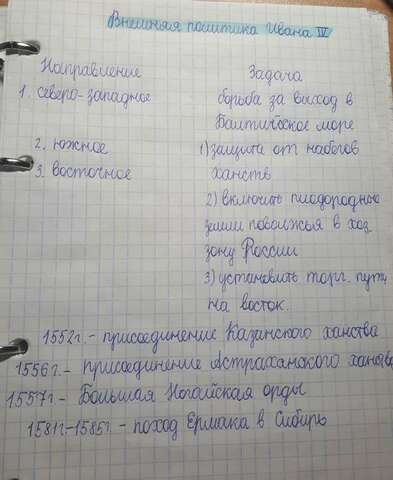 Внешняя политика Ивана IV
Направление Задача
1. северо-западное борьба за выход в
Балтийское море
2. южное 1) защита от набегов
3. восточное ханств
2) включить плодородные
земли поволжья в хоз.
зону России
3) установить торг. пути
на восток.
1552г. - присоединение Казанского ханства
1556г. - присоединение Астраханского ханства
1557г - Большая Ногайская орды
1581г.-1585г. - поход Ермака в Сибирь